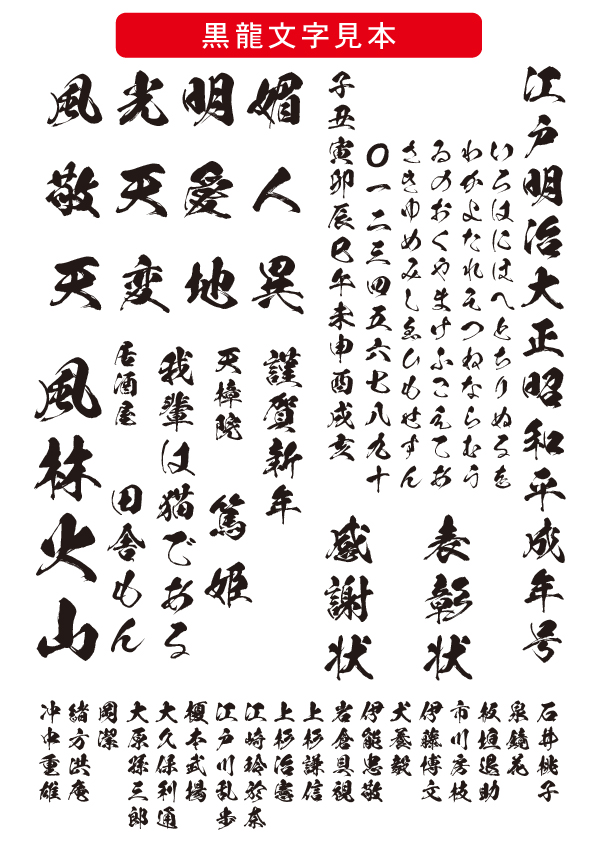 黒龍文字見本
江戸明治大正昭和平成年号
いろはにほへとちりぬるを
わかよたれそつねならむう
ゐのおくやまけふこえてあ
さきゆめみしゑひもせすん
〇一二三四五六七八九十
子丑寅卯辰巳午未申酉戌亥
表彰状
感謝状
風光明媚
敬天愛人
天変地異
謹賀新年
天樟院 篤姫
我輩は猫である
居酒屋 田舎もん
風林火山
石井桃子
泉鏡花
板垣退助
市川房枝
伊藤博文
犬養毅
伊能忠敬
岩倉具視
上杉謙信
上杉治憲
江崎玲於奈
江戸川乱歩
榎本武揚
大久保利通
大原孫三郎
岡潔
緒方洪庵
冲中重雄